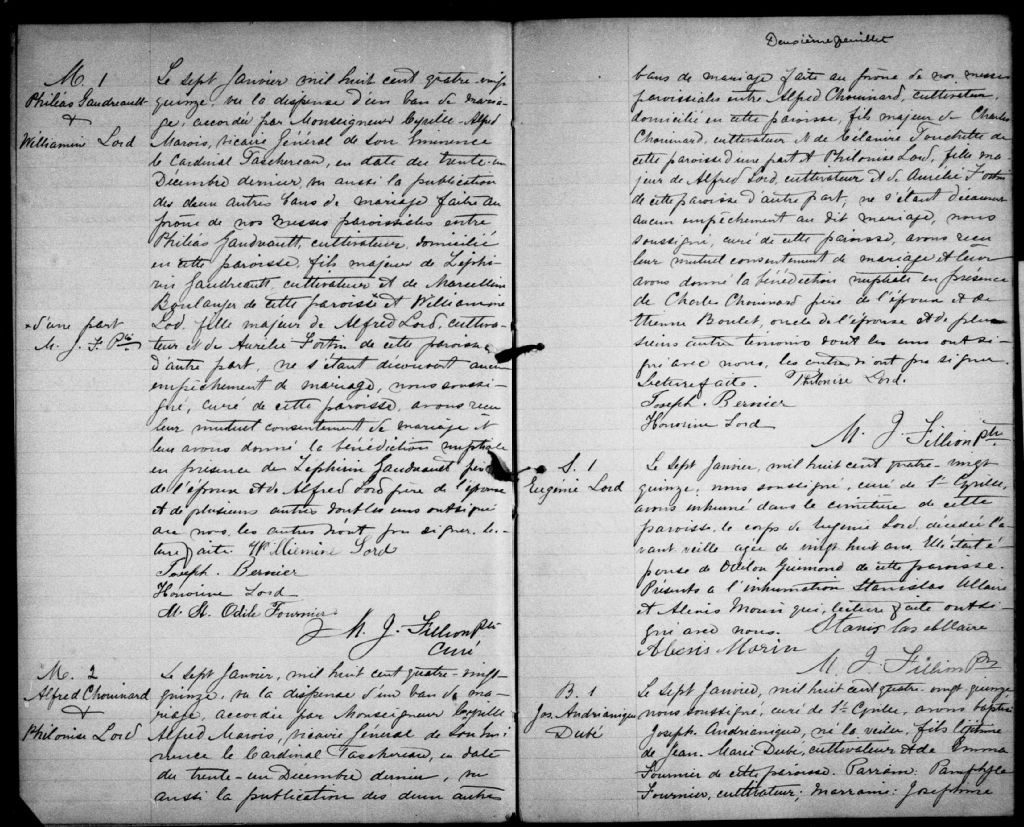 M. 1
Philéas Gaudreault
+
Williamine Lord
Le sept Janvier mil huit cent quatre-vingt
quinze, vu la dispense d'un ban de maria-
ge, accordée par Monseigneur Cyrille-Alfred
Marois, vicaire Général de Son Eminence
le Cardinal Taschereau, en date du trente-un
Décembre dernier, vu aussi la publication
des deux autres bans de mariage faite au
prône de nos messes paroissiales entre
Philéas Gaudreault, cultivateur, domicilié
en cette paroisse, fils majeur de Zéphi-
rin Gaudreault, cultivateur et de Marcelline
Boulanger de cette paroisse et Williamine
x d'une part
M. J. F. Ptre
Lord, fille majeur de Alfred Lord, cultiva-
teur et de Aurélie Fortin de cette paroisse
d'autre part, ne s'étant découvert aucun
empêchement de mariage, nous soussi-
gné, curé de cette paroisse, avons reçu
leur mutuel consentement de mariage et
leur avons donné la bénédiction nuptiale
en présence de Zéphirin Gaudreault père
de l'époux et de Alfred Lord père de l'épouse
et de plusieurs autres dont les uns ont signé
avec nous, les autres n'ont pu signer. Lec-
ture faite. Williemine Lord
Joseph Bernier
Honorine Lord
M. St. Odile Fournier
M. J. Fillion Ptre
Curé
M. 2
Alfred Chouinard
+
Philonise Lord
Le sept Janvier, mil huit cent quatre-vingt
quinze, vu la dispense d'un ban de ma-
riage, accordée par Monseigneur Cyrille
Alfred Marois, vicaire Général de Son Emi-
nence le Cardinal Taschereau, en date
du trente-un Décembre dernier, vu
aussi la publication des deux autres
Deuxième feuillet
bans de mariage faite au prône de nos messes
paroissiales entre Alfred Chouinard, cultivateur,
domicilié en cette paroisse, fils majeur de Charles
Chouinard, cultivateur et de Célanire Fouchette de
cette paroisse d'une part et Philonise Lord, fille ma-
jeur de Alfred Lord, cultivateur et de Aurélie Fortin
de cette paroisse d'autre part, ne s'étant découvert
aucun empêchement au dit mariage, nous
soussigné, curé de cette paroisse, avons reçu
leur mutuel consentement de mariage et leur
avons donné la bénédiction nuptiale en présence
de Charles Chouinard père de l'époux et de
Etienne Boulet, oncle de l'épouse et de plu-
sieurs autre temoins dont les uns ont si-
gné avec nous, les autres n'ont pu signer.
Lecture faite. Philonise Lord.
Joseph. Bernier
Honorine Lord
M. J. Fillion Ptre
S. 1
Eugénie Lord
Le sept Janvier, mil huit cent quatre-vingt
quinze, nous soussigné, curé de St Cyrille,
avons inhumé dans le cimetière de cette
paroisse, le corps de Eugénie Lord, décédée l'a-
vant veille agée de vingt huit ans. Elle était é-
pouse de Odilon Guimond de cette paroisse.
Présents a l'inhumation Stanislas Allaire
et Alexis Morin qui, lecture faite ont si-
gné avec nous. Stanislas Allaire
Alexis Morin
M. J. Fillion Ptre
B. 1
Jos. Andrianique
Dubé
Le sept Janvier, mil huit cent quatre-vingt quinze
nous soussigné, curé de St Cyrille, avons baptisé
Joseph Andrianique, né la veille, fils légitime
de Jean Marie Dubé, cultivateur et de Emma
Fournier de cette paroisse. Parrain: Pamphyle
Fournier, cultivateur; marraine: Josephine